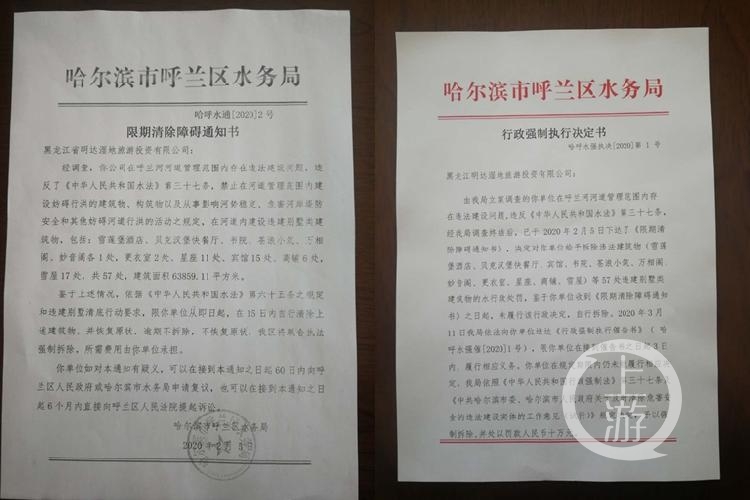 哈尔滨市呼兰区水务局
哈呼水通[2020]2号
限期清除障碍通知书
黑龙江省明达湿地旅游投资有限公司:
经调查,你公司在呼兰河河道管理范围内存在违法建设问题,违
反了《中华人民共和国水法》第三十七条,禁止在河道管理范围内建
设妨碍行洪的建筑物、构筑物以及从事影响河势稳定、危害河岸堤防
安全和其他妨碍河道行洪的活动之规定,在河道内建设违建别墅类建
筑物,包括:雪莲堡酒店、贝克汉堡快餐厅、书院、苍浪小筑、万相阁、
妙音阁各1处,更衣室2处、星座11处、宾馆15处、商铺6处,
雪屋17处,共57处,建筑面积63859.11平方米。
鉴于上述情况,依据《中华人民共和国水法》第六十五条之规定
和违建别墅清底行动要求,限你单位从即日起,在15日内自行清除上
述建筑物,并恢复原状,逾期不拆除,不恢复原状,我区将联合执法
强制拆除,所需费用由你单位承担。
你单位如对本通知有疑义,可以在接到本通知之日起60日内向呼
兰区人民政府或哈尔滨市水务局申请复议,也可以在接到本通知之日
起6个月内直接向呼兰区人民法院提起诉讼。
哈尔滨市呼兰区水务局
2020年2月5日
哈尔滨市呼兰区水务局
行政强制执行决定书
哈呼水强执决[2020]第1号
黑龙江明达湿地旅游投资有限公司:
由我局立案调查的你单位在呼兰河河道管理范围内存
在违法建设问题,违反《中华人民共和国水法》第三十七条,
经我局调查终结后,已于2020年2月5日下达了《限期清
除障碍通知书》,决定对你单位给予拆除违法建筑物(雪莲
堡酒店、贝克汉堡快餐厅、宾馆、书院、苍浪小筑、万相阁、
妙音阁、更衣室、星座、商铺、雪屋)等57处违建别墅类
建筑物的水行政处罚,鉴于你单位收到《限期清除障碍通知
书》之日起,未履行该行政决定,自行拆除。2020年3月
11日我局依法向你单位送达《行政强制执行催告书》(哈
呼水强催[2020]1号),限你单位在接到催告书之日起3日
内,履行相应义务。你单位在规定期限内仍未履行相应决
定,我局依照《中华人民共和国行政强制法》第三十七条及
《中共哈尔滨市委、哈尔滨市人民政府关于依法清除危害安全
的违法建设实体的工作意见(试行)》规定,予以强
制拆除,并处以罚款人民币十万元
上游